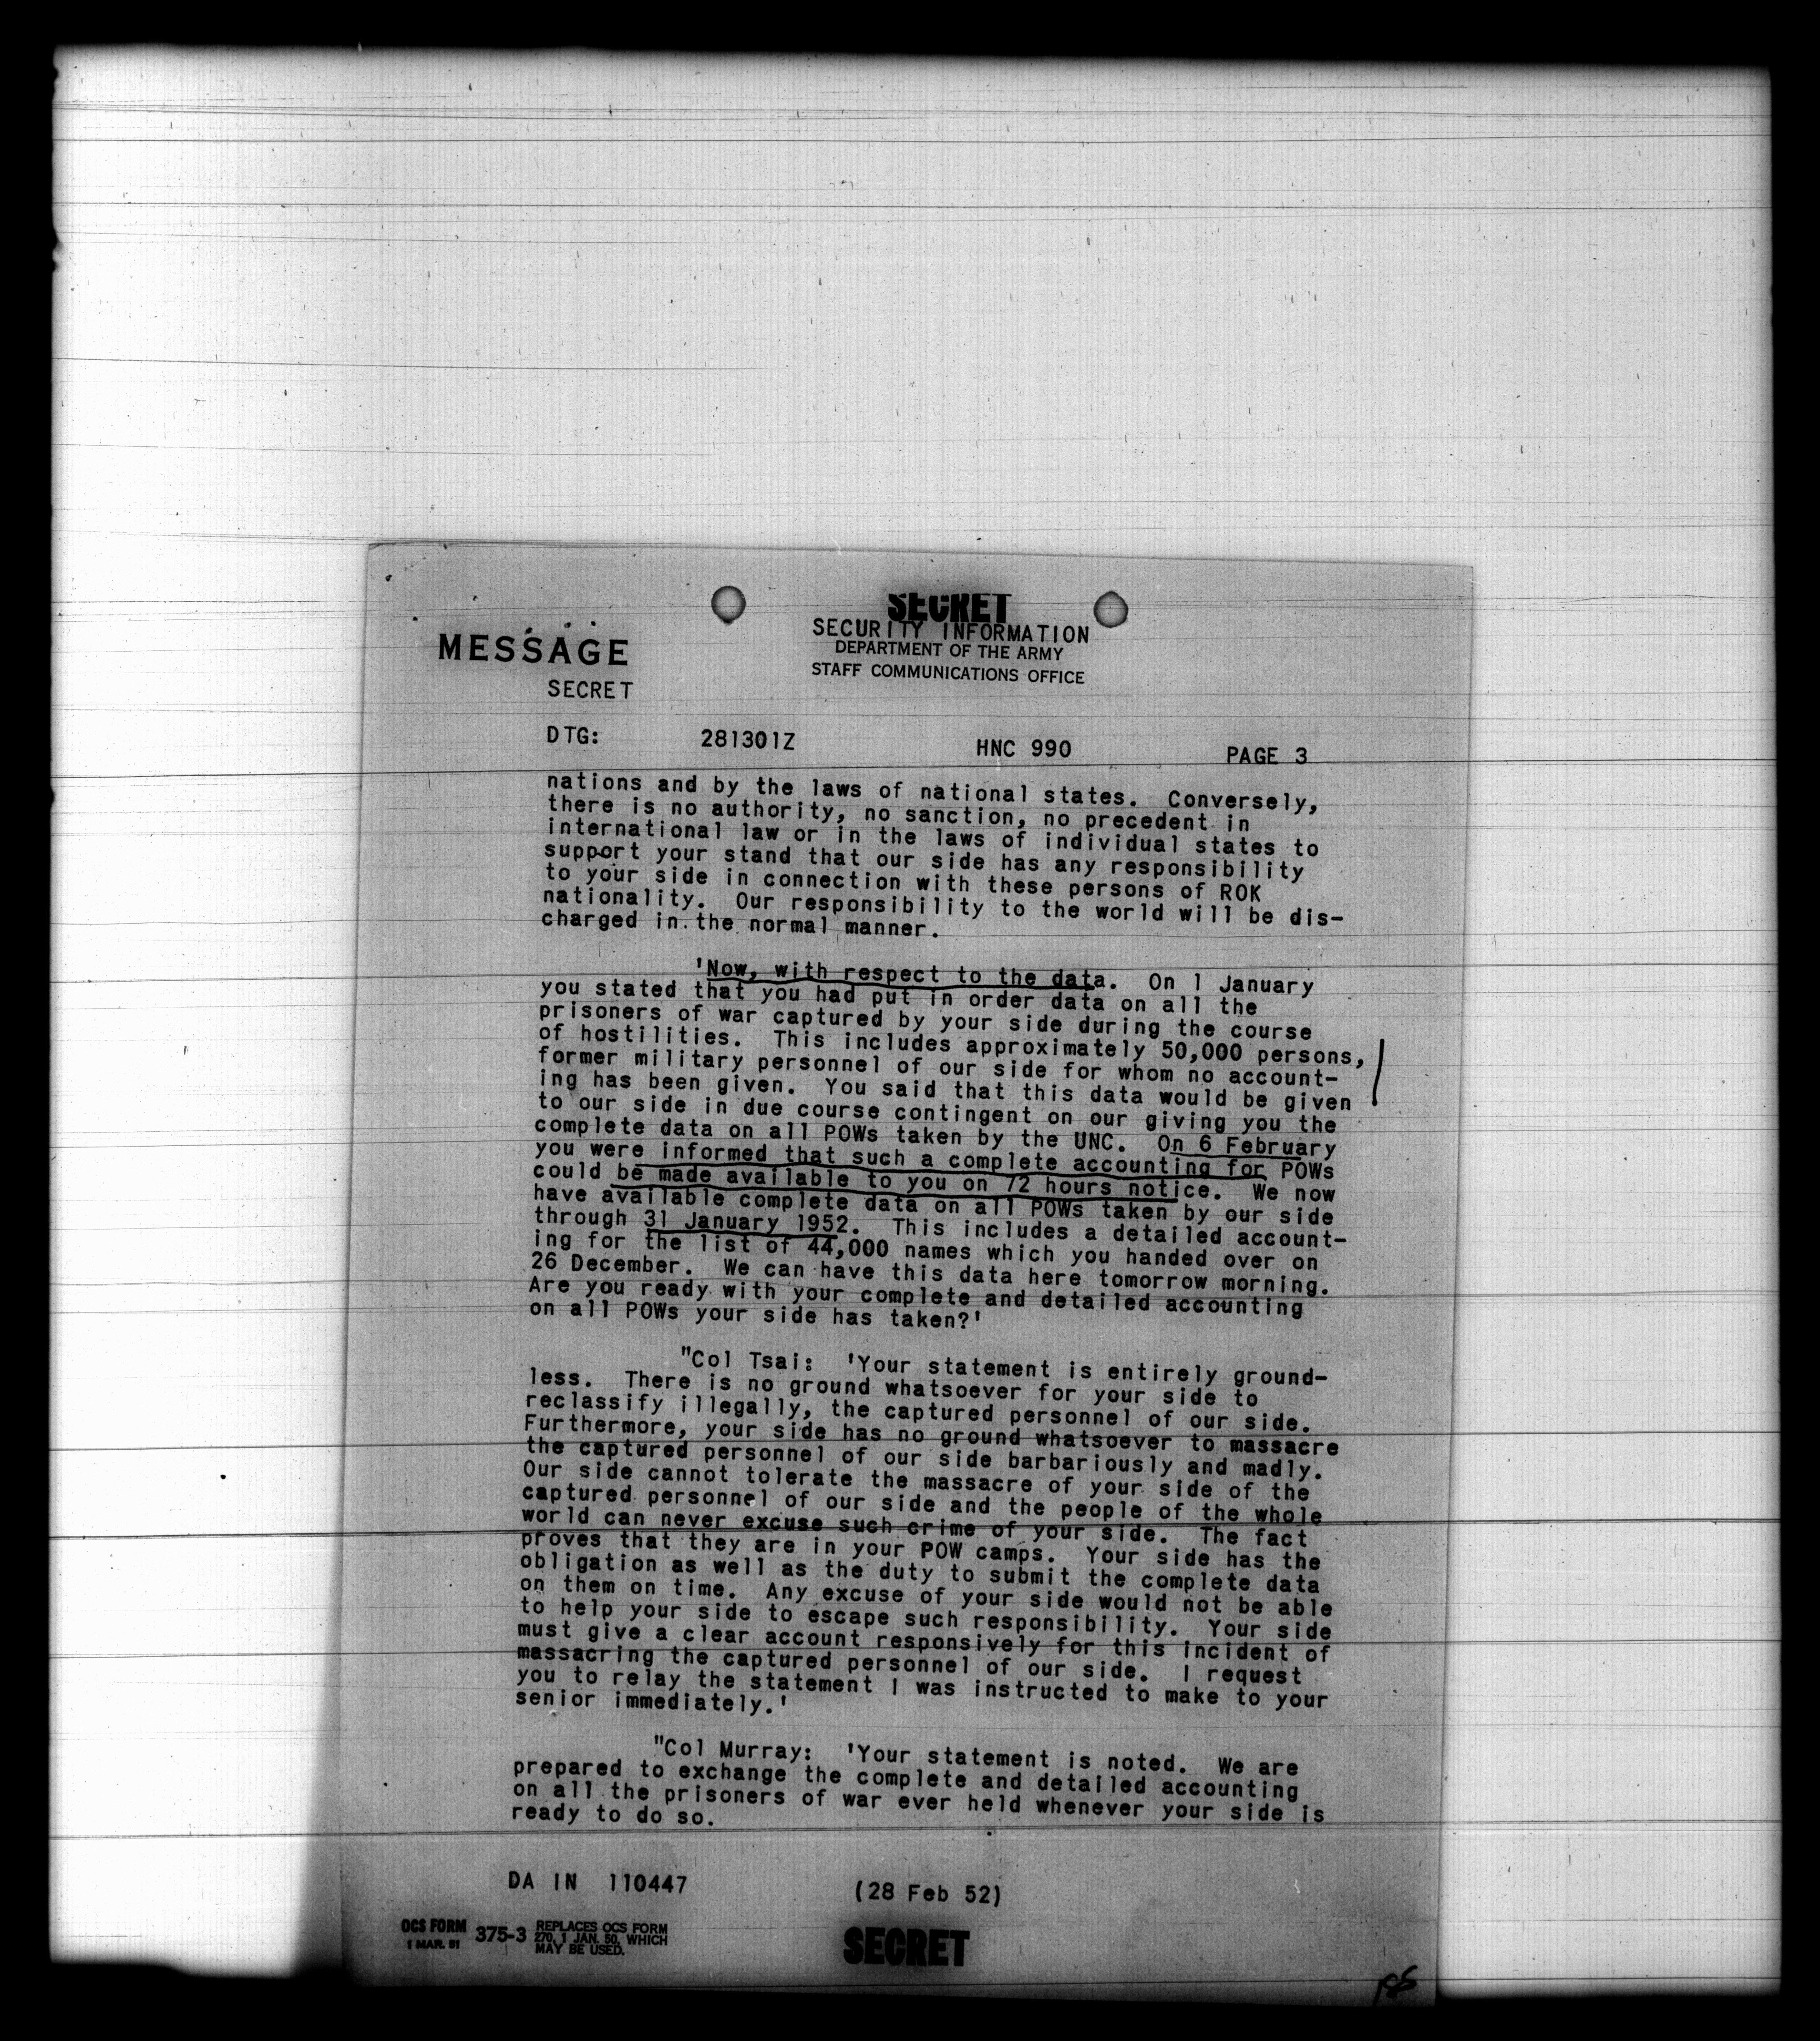 SECRET
SECURITY INFORMATION
MESSAGE
DEPARTMENT OF THE ARMY
STAFF COMMUNICATIONS OFFICE
SECRET
DTG: 281301Z HNC 990 PAGE 3
nations and by the laws of national states. Conversely,
there is no authority, no sanction, no precedent in
international law or in the laws of individual states to
support your stand that our side has any responsibility
to your side in connection with these persons of ROK
nationality. Our responsibility to the world will be dis-
charged in the normal manner.
'Now, with respect to the data. On 1 January
you stated that you had put in order data on all the
prisoners of war captured by your side during the course
of hostilities. This includes approximately 50,000 persons,
former military personnel of our side for whom no account-
ing has been given. You said that this data would be given
to our side in due course contingent on our giving you the
complete data on all POWs taken by the UNC. On 6 February
you were informed that such a complete accounting for POWs
could be made available to you on 72 hours notice. We now
have available complete data on all POWs taken by our side
through 31 January 1952. This includes a detailed account-
ing for the list of 44,000 names which you handed over on
26 December. We can have this data here tomorrow morning.
Are you ready with your complete and detailed accounting
on all POWs your side has taken?'
"Col Tsai: 'Your statement is entirely ground-
less. There is no ground whatsoever for your side to
reclassify illegally, the captured personnel of our side.
Furthermore, your side has no ground whatsoever to massacre
the captured personnel of our side barbariously and madly.
Our side cannot tolerate the massacre of your side of the
captured personnel of our side and the people of the whole
world can never excuse such crime of your side. The fact
proves that they are in your POW camps. Your side has the
obligation as well as the duty to submit the complete data
on them on time. Any excuse of your side would not be able
to help your side to escape such responsibility. Your side
must give a clear account responsively for this incident of
massacring the captured personnel of our side. I request
you to relay the statement I was instructed to make to your
senior immediately.'
"Col Murray: 'Your statement is noted. We are
prepared to exchange the complete and detailed accounting
on all the prisoners of war ever held whenever your side is
ready to do so.
DA IN 110447 (28 Feb 52)
OCS FORM 375-3 REPLACES OCS FORM
1 MAR. 51 270, 1 JAN. 50, WHICH
MAY BE USED.
SECRET